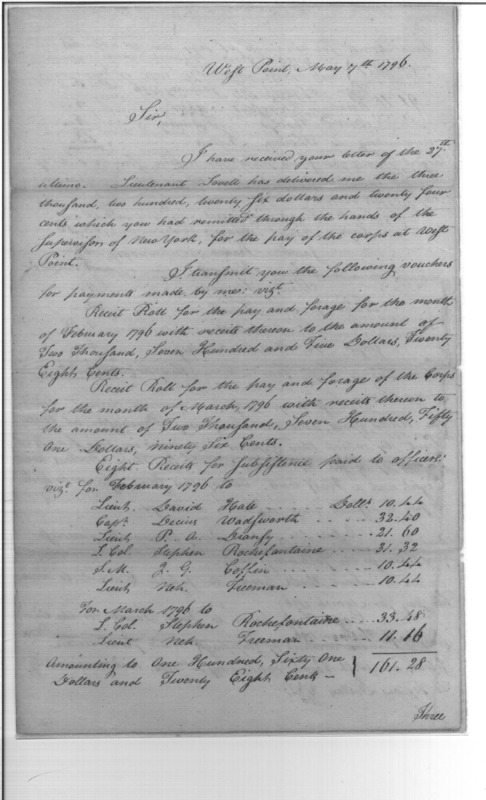 West Point, May 7th 1796.
Sir,
I have received your letter of the 27th
ultimo. Lieutenant Lovell has delivered me the three
thousand, two hundred, twenty six dollars and twenty four
cents which you had remitted through the hands of the
Supervison of New York, for the pay of the corps at West
Point.
I transmit you the following vouchers
for payments made by me: vizt.
Receit Roll for the pay and forage for the month
of February 1796 with receits thereon to the amount of
Two Thousand, Seven Hundred and Five Dollars, Twenty
Eight Cents.
Receit Roll for the pay and forage of the Corps
for the month of March, 1796 with receits thereon to
the amount of Two Thousand, Seven Hundred, Fifty
One Dollars, Ninety Six Cents.
Eight Receits for Subsistence paid to officers:
vizt. for February 1796 to
Lieut. David Hale Dolls. 10.44
Capt. Decius Wadsworth 32.40
Lieut P. A. Dransy 21.60
L. Col. Stephen Rochefontaine 31.32
S.M. J. G. Coffin 10.44
Lieut. Neh. Freeman 10.44
For March 1796 to
L. Col. Stephen Rochefontaine 33.48
Lieut Neh. Freeman 11.16
Amounting to One Hundred, Sixty One
Dollars and Twenty Eight Cents — } 161.28
Three